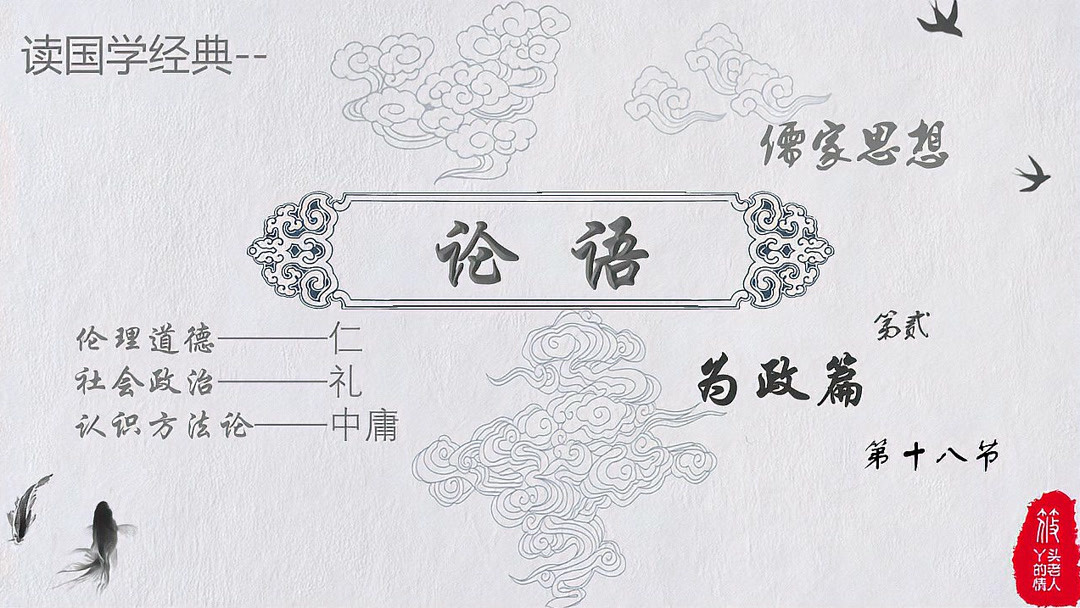 读国学经典--
儒家思想
论语
第贰
为政篇
第十八节
伦理道德———仁
社会政治———礼
认识方法论——中庸
筱
丫头的老情人